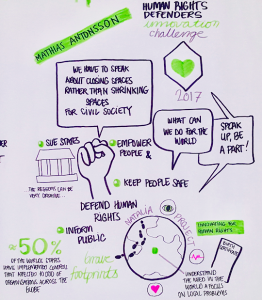 HUMAN RIGHTS
DEFENDERS
innovation
challenge
MATHIAS ANTONSSON
2017
WE HAVE TO SPEAK
ABOUT CLOSING SPACES
RATHER THAN SHRINKING
SPACES
FOR CIVIL SOCIETY
WHAT CAN
WE DO FOR THE
WORLD
SPEAK
UP, BE
A PART!
SUE STATES
EMPOWER
PEOPLE &
THE REGIONS CAN BE
VERY
KEEP PEOPLE SAFE
DEFEND HUMAN
RIGHTS
INFORM
PUBLIC
NATALIA PROJECT
INNOVATING FOR
HUMAN RIGHTS
50%
OF THE WORLD STATES
HAVE IMPLEMENTED CONTROL
THAT
ORGANISATIONS ACROSS THE
GLOBE
brave
footprints
UNDERSTAND
THE NEED IN THE
WORLD & FOCUS
ON LOCAL PROBLEMS